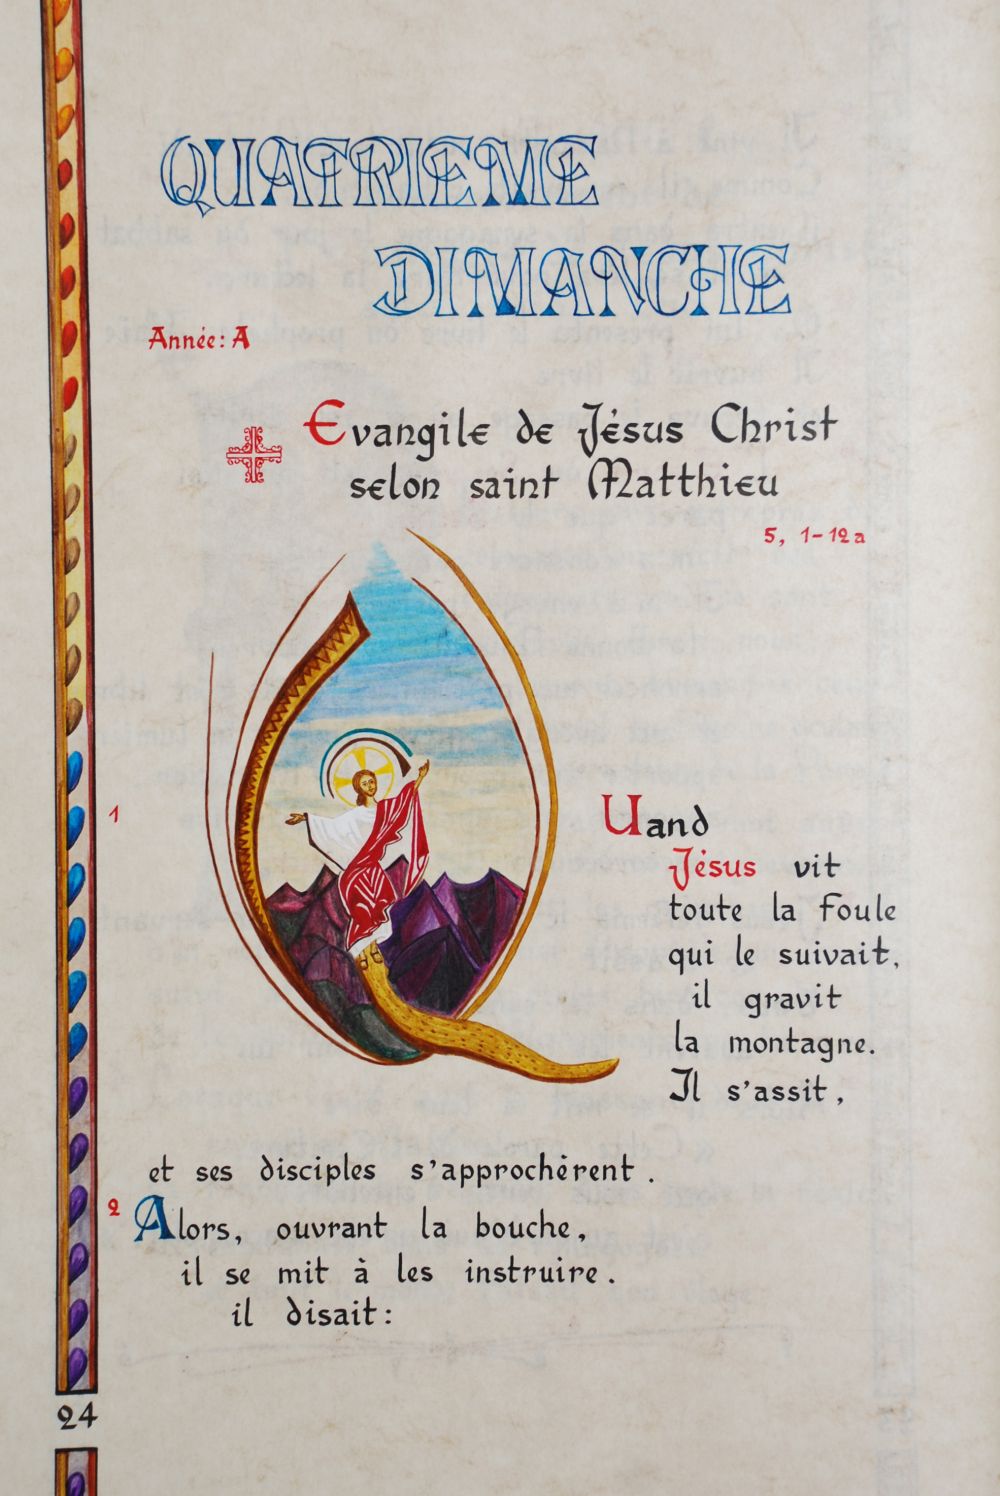 QUATRIEME
DIMANCHE
Année: A
Evangile de Jésus Christ
selon saint Matthieu
5, 1-12a
1
QUand
Jésus vit
toute la foule
qui le suivait,
il gravit
la montagne.
Il s'assit,
et ses disciples s'approchèrent.
2 Alors, ouvrant la bouche,
il se mit à les instruire.
il disait:
24